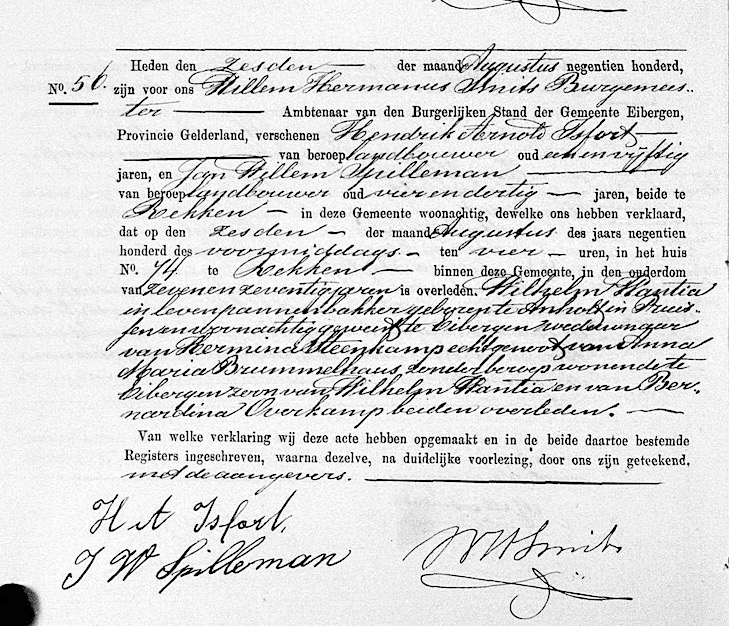 Heden den zesden der maand Augustus negentien honderd,
No. 56. zijn voor ons Willem Hermanus Smits Burgemees-
ter Ambtenaar van den Burgerlijken Stand der Gemeente Eibergen,
Provincie Gelderland, verschenen Hendrik Arnold Isfort
van beroep landbouwer oud een en vijftig
jaren, en Jan Willem Spilleman
van beroep landbouwer oud vier en dertig jaren, beide te
Rekken in deze Gemeente woonachtig, dewelke ons hebben verklaard,
dat op den zesden der maand Augustus des jaars negentien
honderd des voormiddags ten vier uren, in het huis
No. 74 te Rekken binnen deze Gemeente, in den ouderdom
van zeven en zeventig jaren is overleden. Wilhelm Wantia
in leven pannenbakker geboren te Anholt in Pruis-
sen en woonachtig geweest te Eibergen weduwnaar
van Hermina Steenkamp echtgenoot van Anna
Maria Brummelhaus, zonder beroep wonende te
Eibergen zoon van Wilhelm Wantia en van Ber-
nardina Overkamp beiden overleden.
Van welke verklaring wij deze acte hebben opgemaakt en in de beide daartoe bestemde
Registers ingeschreven, waarna dezelve, na duidelijke voorlezing, door ons zijn geteekend,
met de aangevers.
H A Isfort,
J W Spilleman
WHSmits